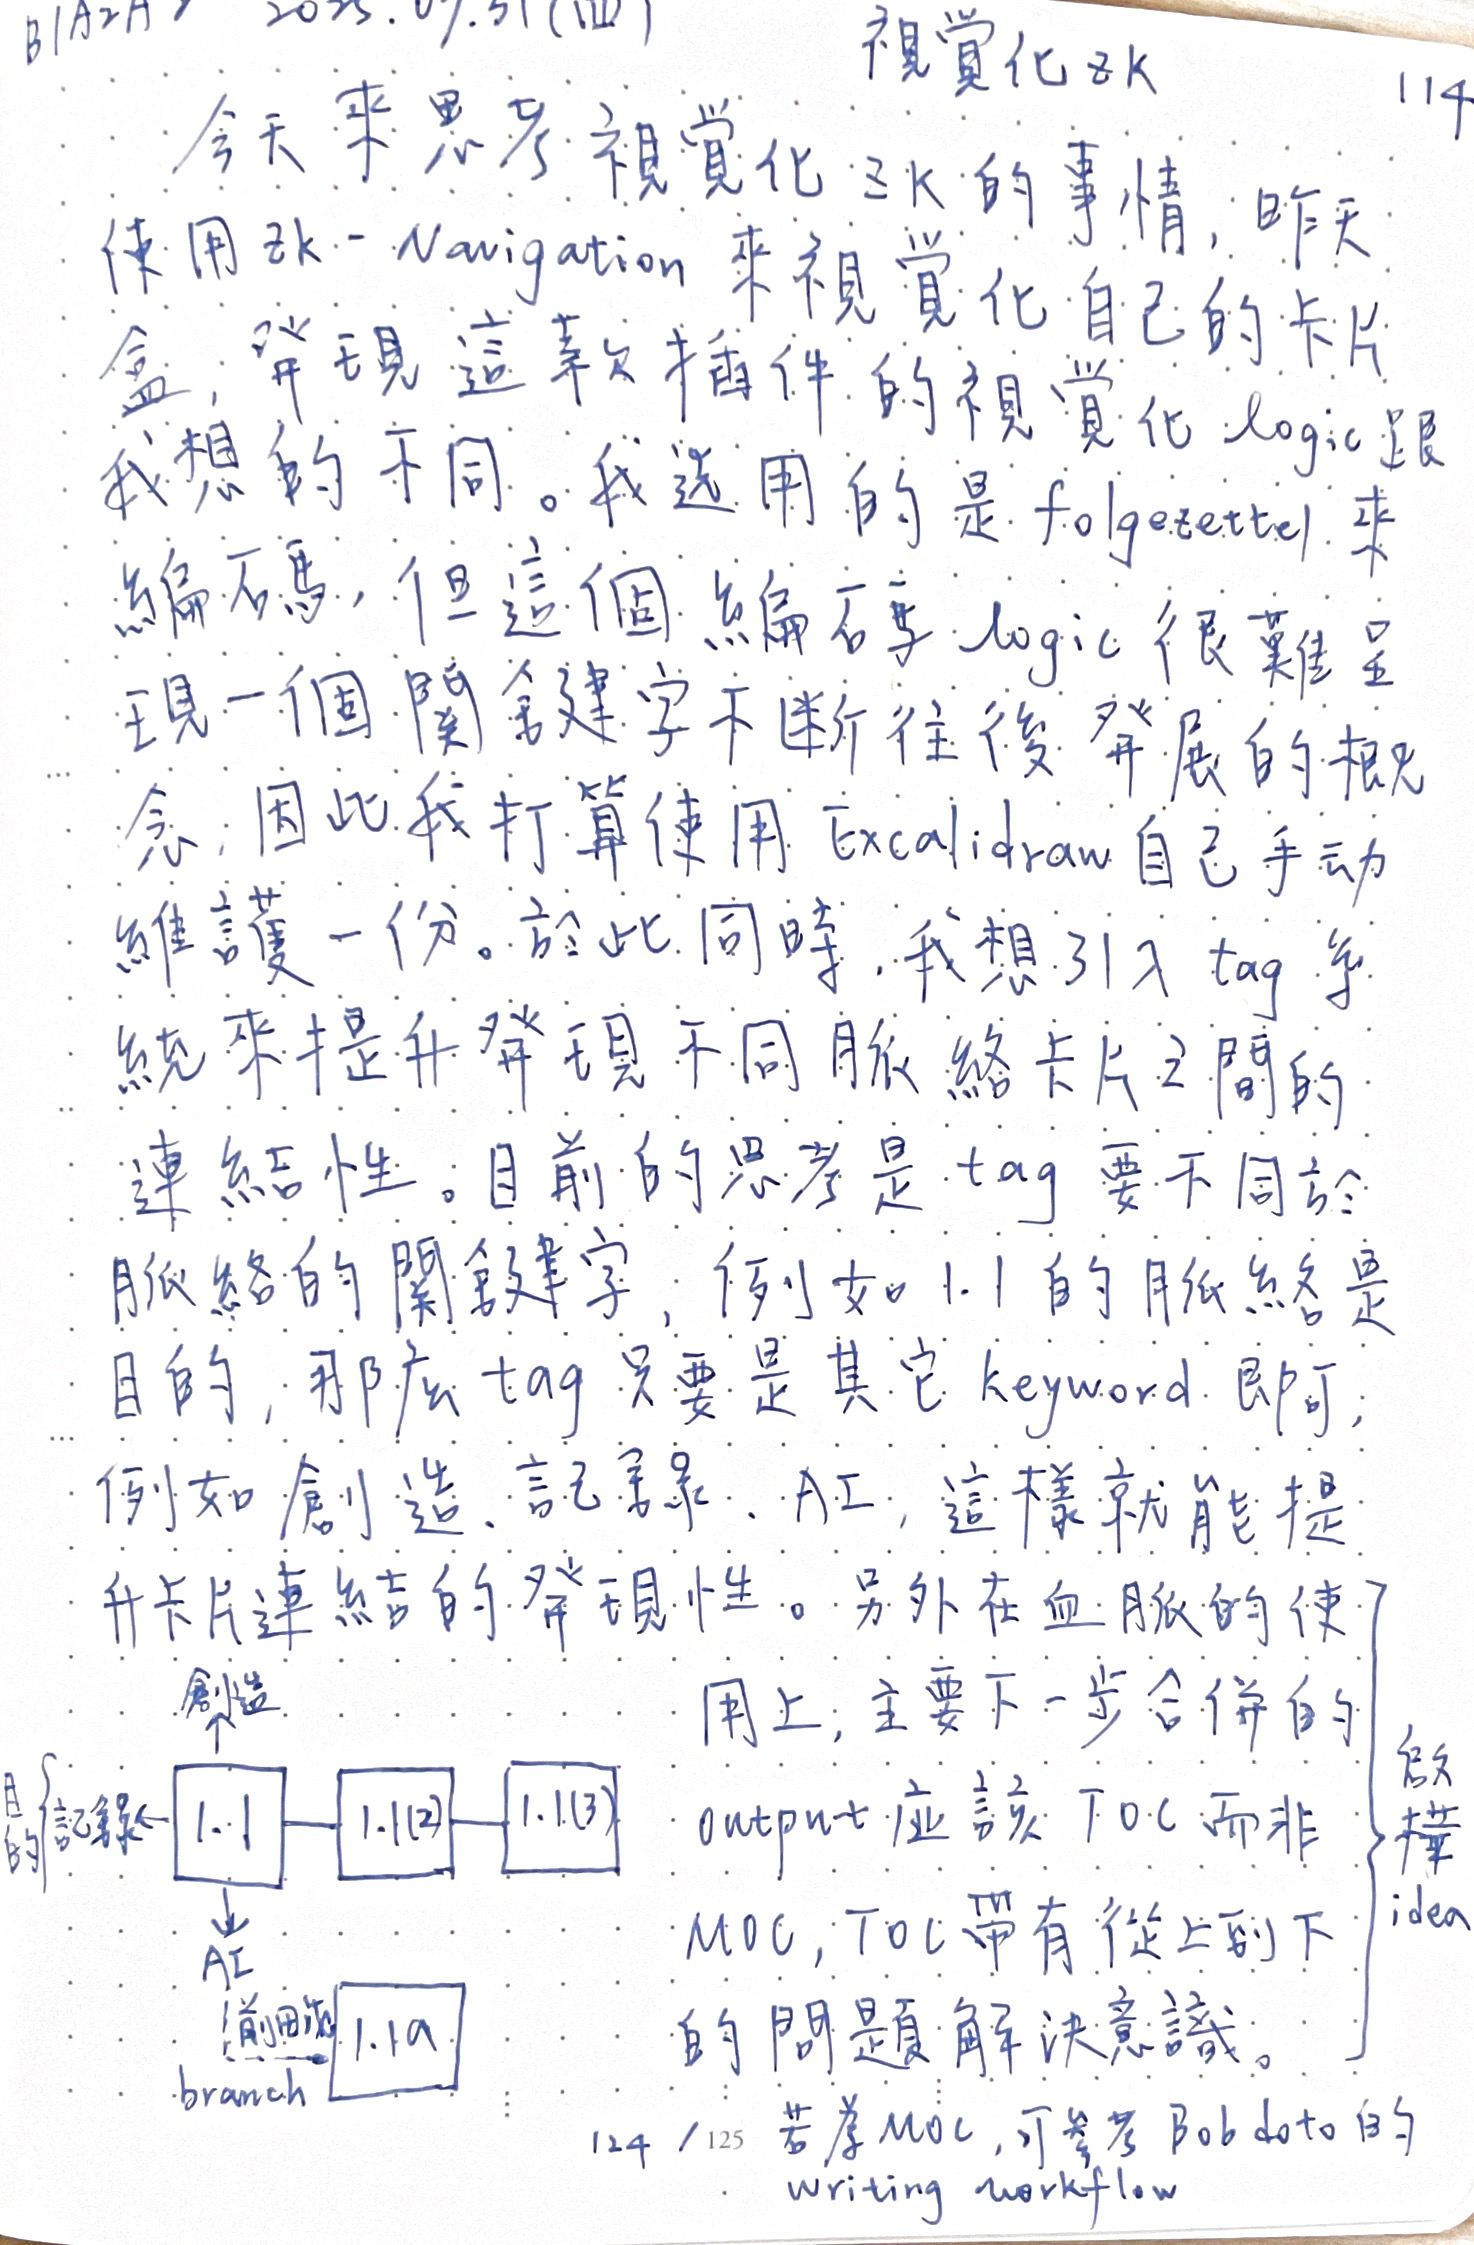 B1A2A 2025.07.31(四)
視覺化ZK
114
今天來思考視覺化ZK的事情,昨天
使用ZK-Navigation來視覺化自己的卡片
盒,發現這款插件的視覺化logic跟
我想的不同。我選用的是folgezettel來
編碼,但這個編碼logic很難呈
現一個關鍵字不斷往後發展的概
念,因此我打算使用Excalidraw自己手动
維護一份。於此同時,我想引入tag系
統來提升發現不同脈絡卡片之間的
連結性。目前的思考是tag要不同於
脈絡的關鍵字,例如1.1的脈絡是
目的,那庅tag只要是其它keyword即可,
例如創造、記錄、AI,這樣就能提
升卡片連結的發現性。另外在血脈的使
用上,主要下一步合併的
output应該TOC而非
MOC,TOC帶有從上到下
的問題解決意識。
啟
樺
idea
創造
目的
記錄
1.1
1.1(2)
1.1(3)
AI
branch
1.1a
124/125
若為MOC,可參考Bob doto的
writing workflow